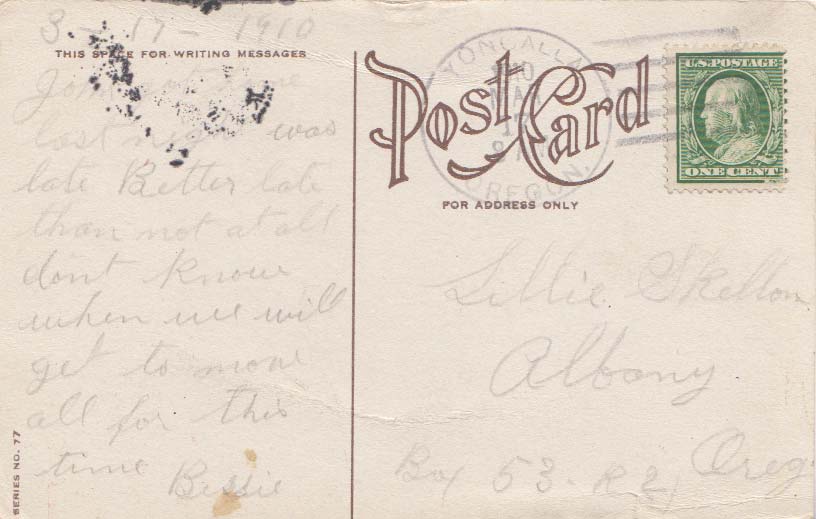 3 - 17 - 1910
THIS SPACE FOR WRITING MESSAGES
John got here
last night was
late Better late
than not at all
dont know
when we will
get to move
all for this
time
Bessie
SERIES NO. 77
Post Card
FOR ADDRESS ONLY
YONCALLA
MAR
17
OREGON.
U.S. POSTAGE
ONE CENT
Lillie Skelton
Albany
Box 53 - R 2, Oreg